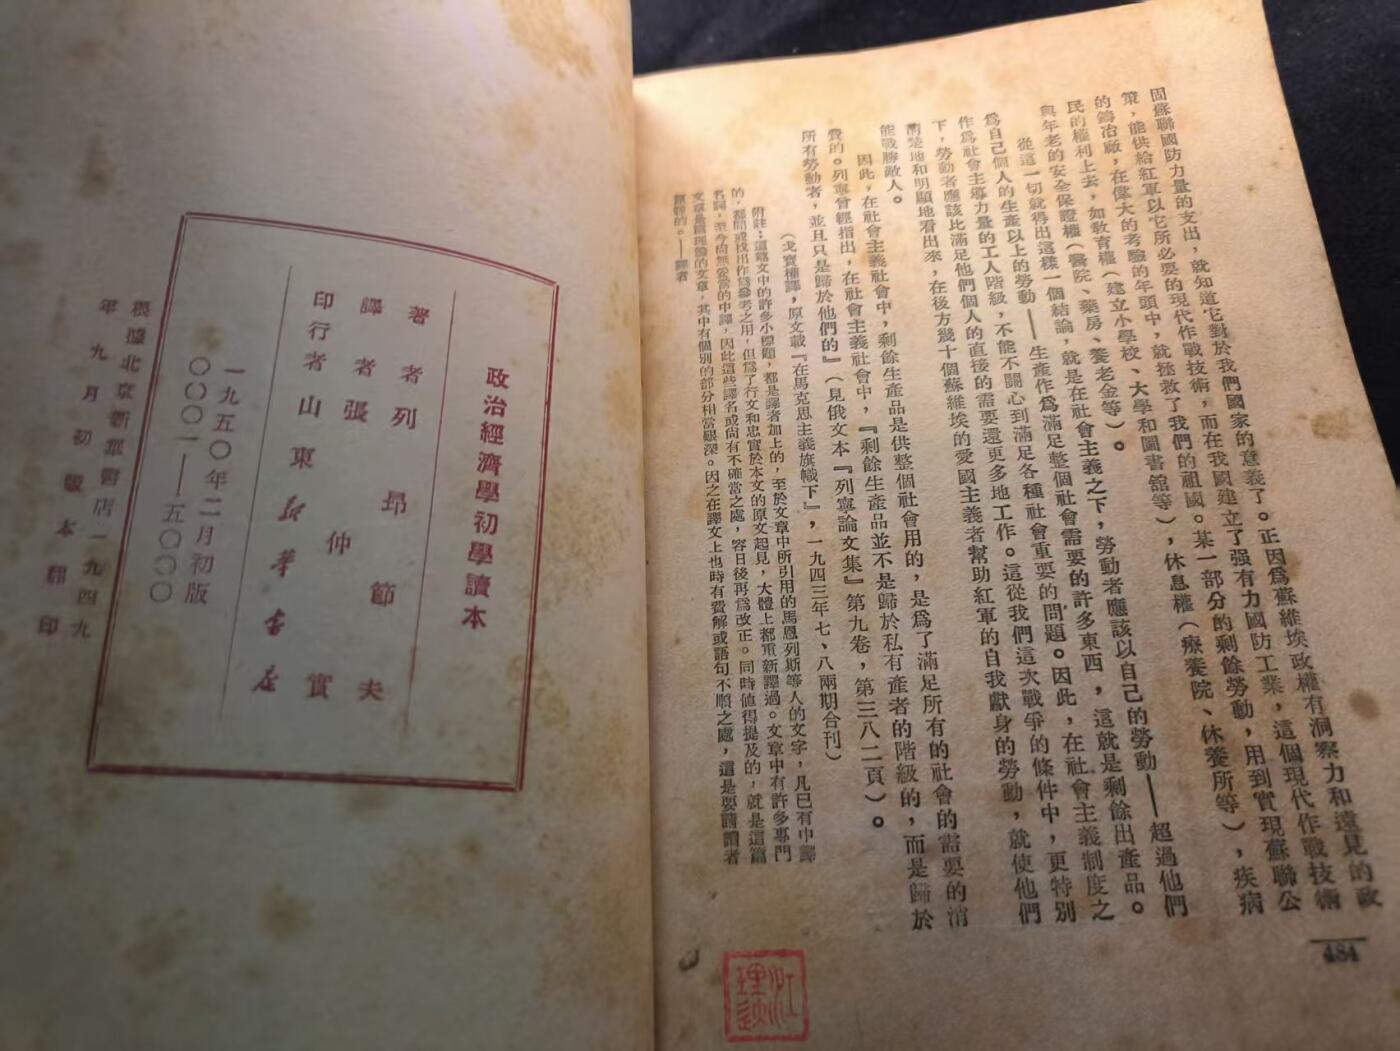 固蘇聯國防力量的支出，就知道它對於我們國家的意義了。正因爲蘇維埃政權有洞察力和遠見的政
策，能供給紅軍以它所必要的現代作戰技術，而在我國建立了强有力國防工業，這個現代作戰技術
的鑄冶廠，在偉大的考驗的年頭中，就拯救了我們的祖國。某一部分的剩餘勞動，用到實現蘇聯公
民的權利上去，如教育權（建立小學校、大學和圖書舘等），休息權（療養院、休養所等），疾病
與年老的安全保證權（醫院、藥房、養老金等）。
從這一切就得出這樣一個結論，就是在社會主義之下，勞動者應該以自己的勞動——超過他們
爲自己個人的生產以上的勞動——生產作爲滿足整個社會需要的許多東西，這就是剩餘出產品。
作爲社會主導力量的工人階級，不能不關心到滿足各種社會重要的問題。因此，在社會主義制度之
下，勞動者應該比滿足他們個人的直接的需要還更多地工作。這從我們這次戰爭的條件中，更特別
淸楚地和明顯地看出來，在後方幾十個蘇維埃的愛國主義者幫助紅軍的自我獻身的勞動，就使他們
能戰勝敵人。
因此，在社會主義社會中，剩餘生產品是供整個社會用的，是爲了滿足所有的社會的需要的消
費的。列寧曾經指出，在社會主義社會中，『剩餘生產品並不是歸於私有產者的階級的，而是歸於
所有勞動者，並且只是歸於他們的』（見俄文本『列寧論文集』第九卷，第三八二頁）。
（戈寶權譯，原文載『在馬克思主義旗幟下』，一九四三年七、八兩期合刊）
附註：這篇文中的許多小標題，都是譯者加上的，至於文章中所引用的馬恩列斯等人的文字，凡已有中譯
的，都間或找出作爲參考之用，但爲了行文和忠實於本文的原文起見，大體上都重新譯過。文章中有許多專門
名詞，至今尙無妥當的中譯，因此這些譯名或尙有不確當之處，容日後再爲改正。同時値得提及的，就是這篇
文章是篇理論的文章，其中有個別的部分相當艱深。因之在譯文上也時有費解或語句不順之處，這是要請讀者
原諒的。——譯者
484
政治經濟學初學讀本
著者列昂節夫
譯者張仲實
印行者山東新華書店
一九五〇年二月初版
〇〇〇一——五〇〇〇
根據北京新華書店一九四九
年九月初版本翻印